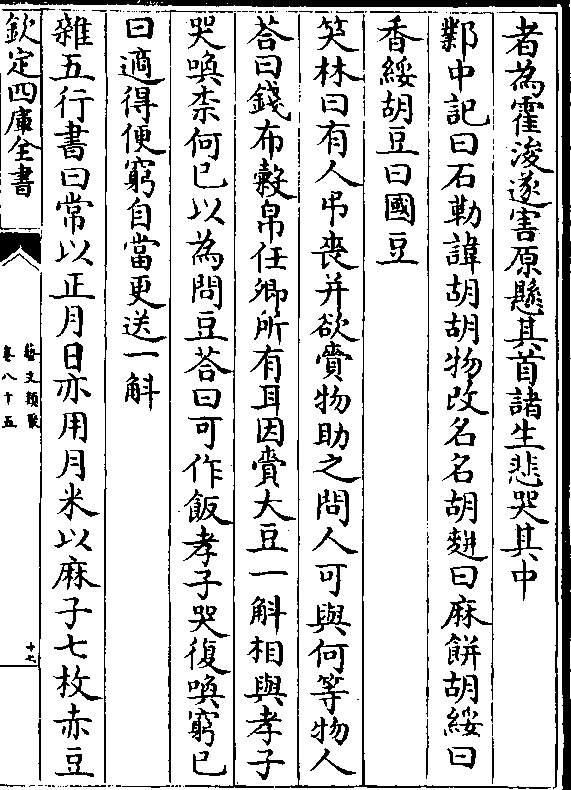 者為霍浚遂害原懸其首諸生悲哭其中
鄴中記曰石勒諱胡胡物改名名胡䴵曰麻餅胡綏曰
香綏胡豆曰國豆
笑林曰有人弔喪并欲賷物助之問人可與何等物人
荅曰錢布糓帛任卿所有耳因賷大豆一斛相與孝子
哭喚柰何已以為問豆荅曰可作飯孝子哭復喚窮已
曰適得便窮自當更送一斛
雜五行書曰常以正月日亦用月米以麻子七枚赤豆
欽定四庫全書
藝文類聚
卷八十五
十七